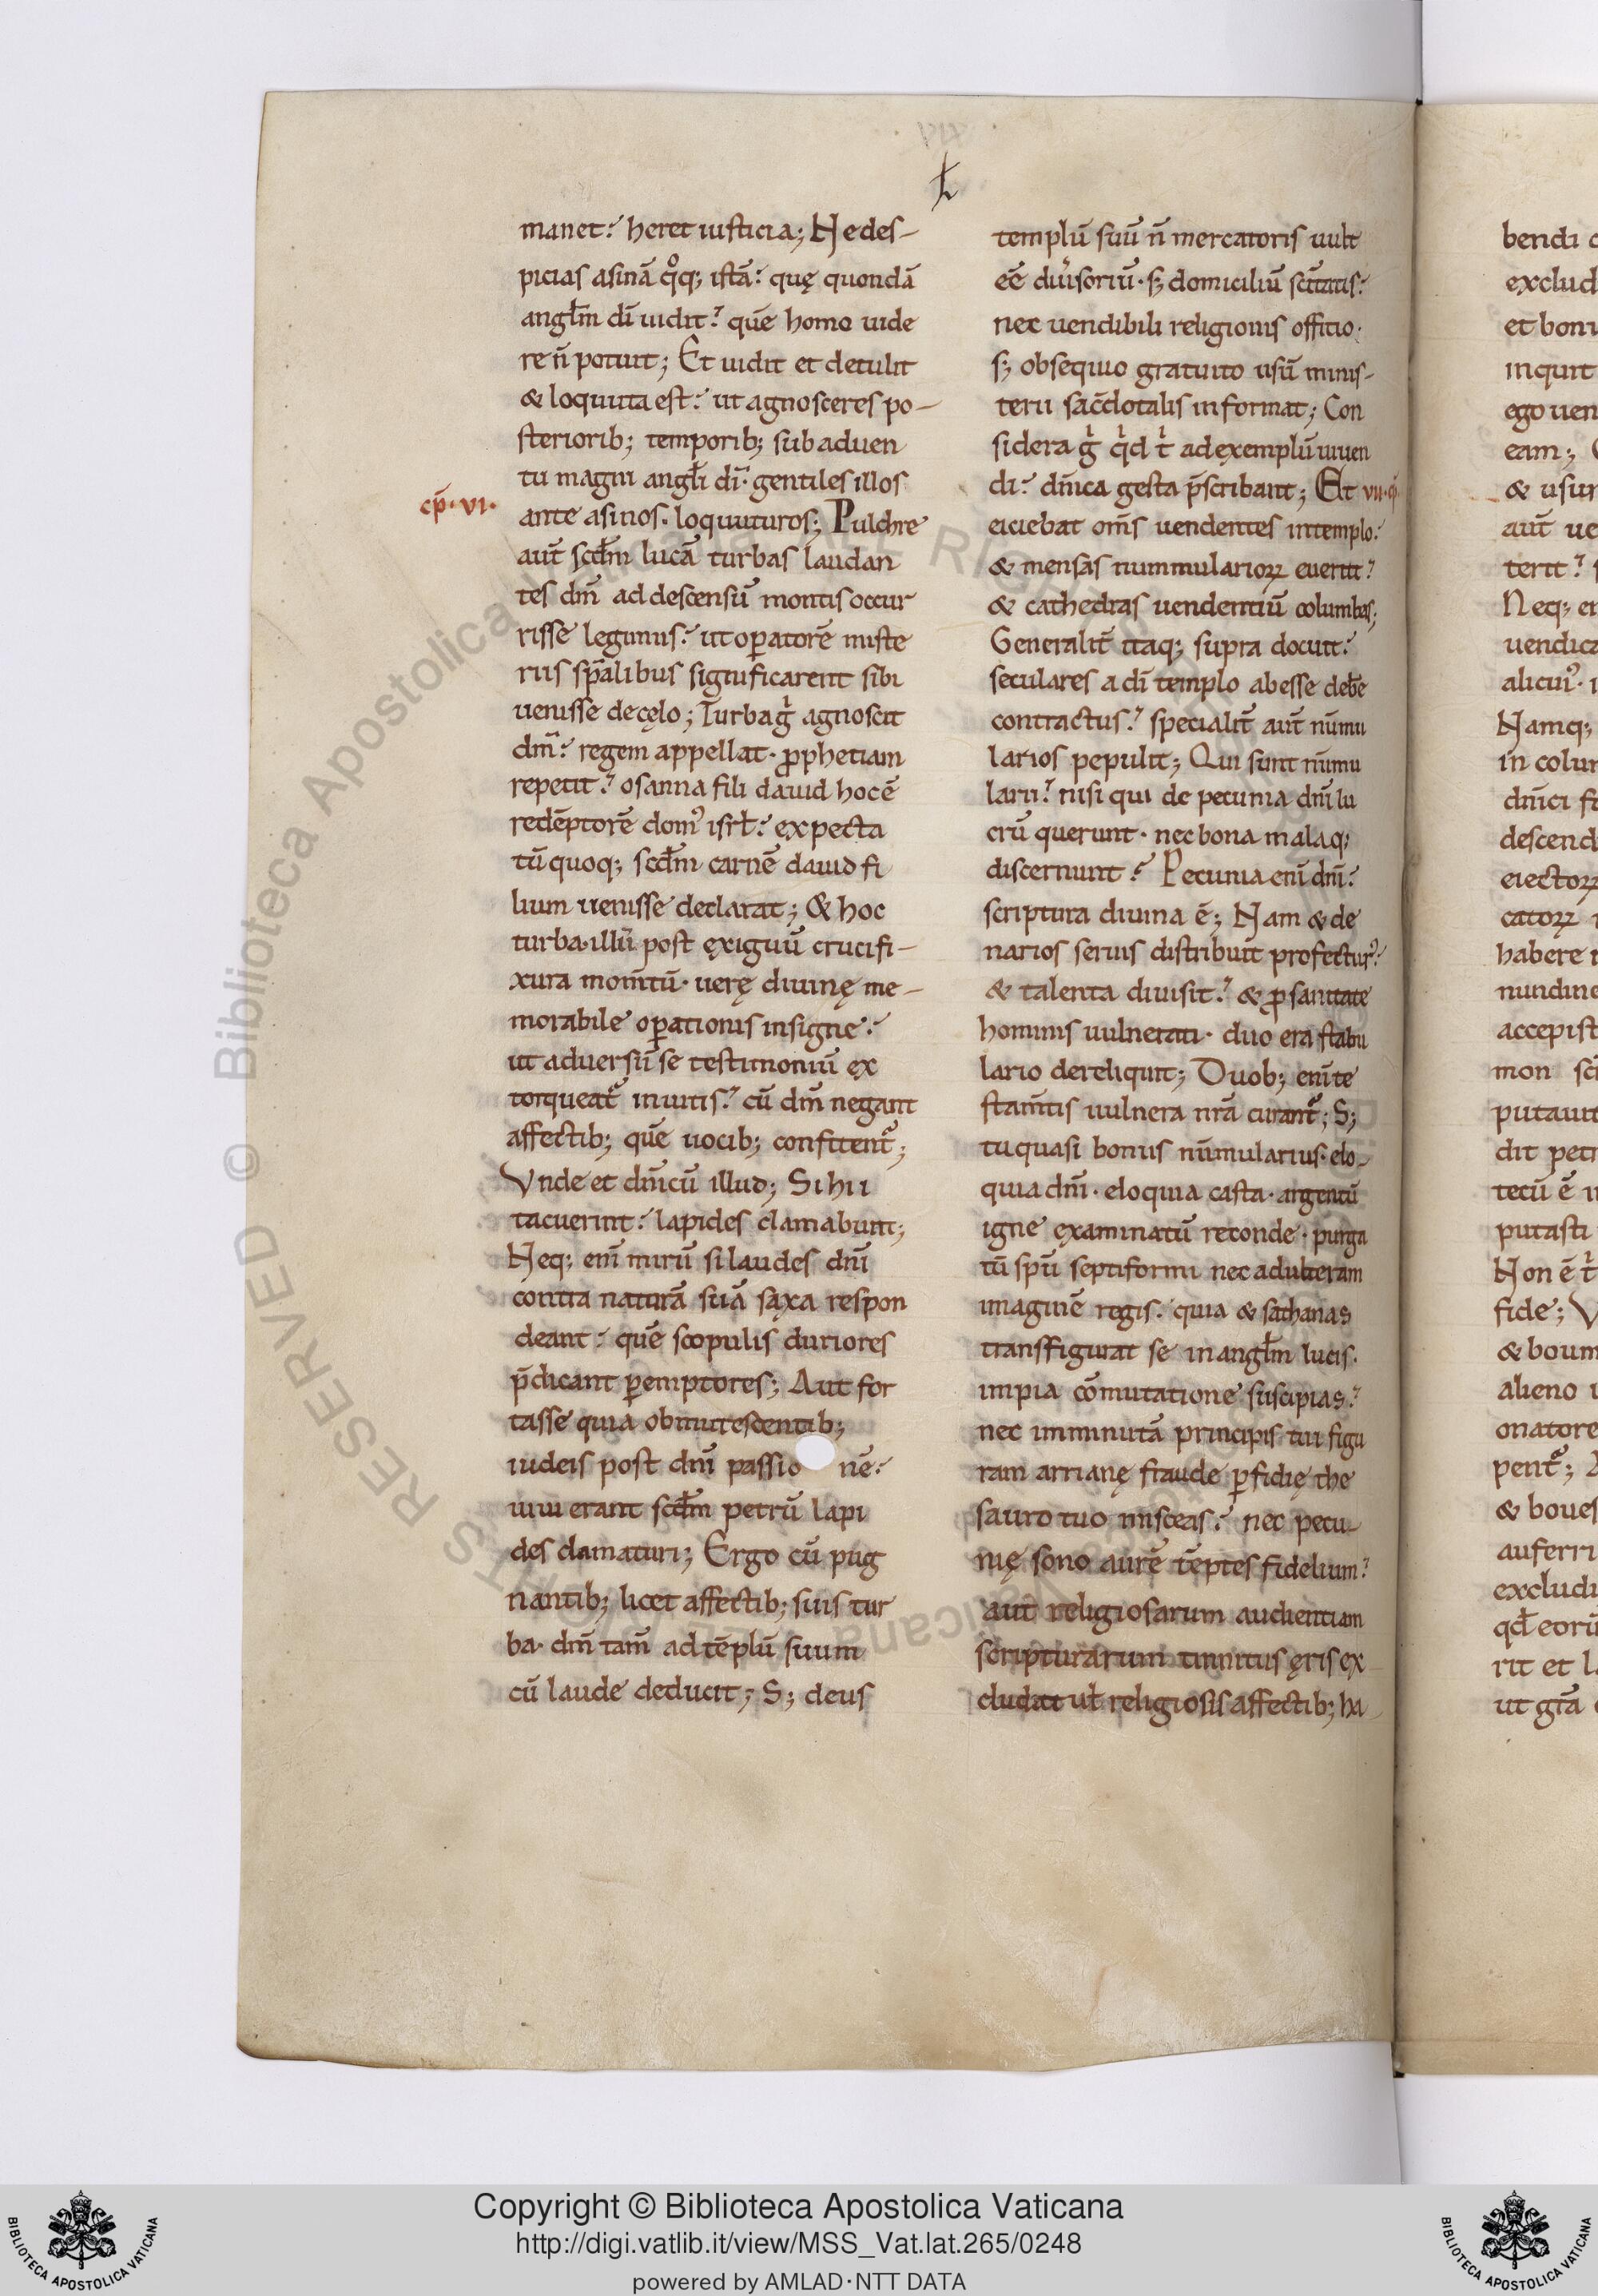 manet? heret iusticia; Ne des-
picias asinā qͦq; istā? quę quondā
angłm dī uidit? quē homo uide
re n̄ potuit; Et uidit et detulit
& loquuta est? ut agnosceres po-
steriorib; temporib; sub aduen
tu magni angłi dī· gentiles illos
cp̄· VI·
ante asinos· loquuturos; Pulchre
aut̄ scđm lucā turbas laudan
tes dm̄ ad descensū montis occur
risse legimus? ut oꝑatorē miste
riis sp̄alibus significarent sibi
uenisse de cęlo; Turba gͥ agnoscit
dm̄? regem appellat· ꝓphetiam
repetit? osanna fili dauid hoc ē
redēptorē domꝰ isrł? expecta
tū quoq; scđm carnē dauid fi
lium uenisse declarat; & hoc
turba· illū post ęxiguū crucifi-
xura mom̄tū· uerę diuinę me-
morabile oꝑationis insigne?
ut aduersū se testimoniū ex
torqueat᷑ inuitis? cū dm̄ negant
affectib; quē uocib; confitent᷑;
Vnde et dn̄icū illud; Si hii
tacuerint? lapides clamabunt;
Neq; enī mirū si laudes dn̄i
contra naturā suā saxa respon
deant? quē scopulis duriores
p̄dicant ꝑemptores; Aut for
tasse quia obmutescentib;
iudeis post dn̄i passio nē?
uiui erant scđm petrū lapi
des clamaturi; Ergo cū pug
nantib; licet affectib; suis tur
ba· dm̄ tam̄ ad tēplū suum
cū laude deducit; S; deus
templū suū n̄ mercatoris uult
eē diu̓soriū· s; domiciliū sc̄itatis?
nec uendibili religionis offitio·
s; obsequio gratuito usū minis-
terii sac̄dotalis informat; Con
sidera gͥ qͥd tͥ ad exemplū uiuen
di? dn̄ica gesta p̄scribant; Et VII· cp̄
eiciebat om̄s uendentes in templo?
& mensas nummularioꝝ euertit?
& cathedras uendentiū columbas;
Generalit̄ itaq; supra docuit?
seculares a dī templo abesse deb̄e
contractus? specialit̄ aut̄ nūmu
larios pepulit; Qui sunt nūmu
larii? nisi qui de pecunia dn̄i lu
crū querunt· nec bona malaq;
discernunt? Pecunia enī dn̄i?
scriptura diuina ē; Nam & de
narios seruis distribuit profecturꝰ?
& talenta diuisit? & ꝓ sanitate
hominis uulnerati· duo era stabu
lario dereliquit; Duob; enī te
stam̄tis uulnera nr̄a curant᷑; S;
tu quasi bonus nūmularius· elo-
quia dn̄i· eloquia casta· argentū
igne examinatū reconde· purga
tū spū septiformi nec adulteram
imaginē regis· quia & sathanas
transffigurat se in angłm lucis·
impia cōmutatione suscipias?
nec imminutā principis tui figu
ram arrianę fraude ꝑfidię the
sauro tuo misceas? nec pecu-
nię sono aurē tēptes fidelium?
aut religiosarum audientiam
scripturarum tinnitus ęris ex
cludat uł religiosis affectib; ha
bendi
exclud
et bon
inquit
ego uen
eam;
& usur
aut̄ ue
terit?
Neq; en
uendica
alicuiꝰ·
Namq;
in colum
dn̄ici
descend
eiectoꝝ
catoꝝ
habere
nundine
accepist
mon
putauit
dit petr
tecū ē
putasti
Non ē tͥ
fide;
& boum
alieno
onatore
pent᷑;
& boues
auferri
excludi
qđ eorū
rit et
ut gr̄a
Copyright © Biblioteca Apostolica Vaticana
http://digi.vatlib.it/view/MSS_Vat.lat.265/0248
powered by AMLAD·NTT DATA
BIBLIOTECA APOSTOLICA VATICANA
BIBLIOTECA APOSTOLICA VATICANA